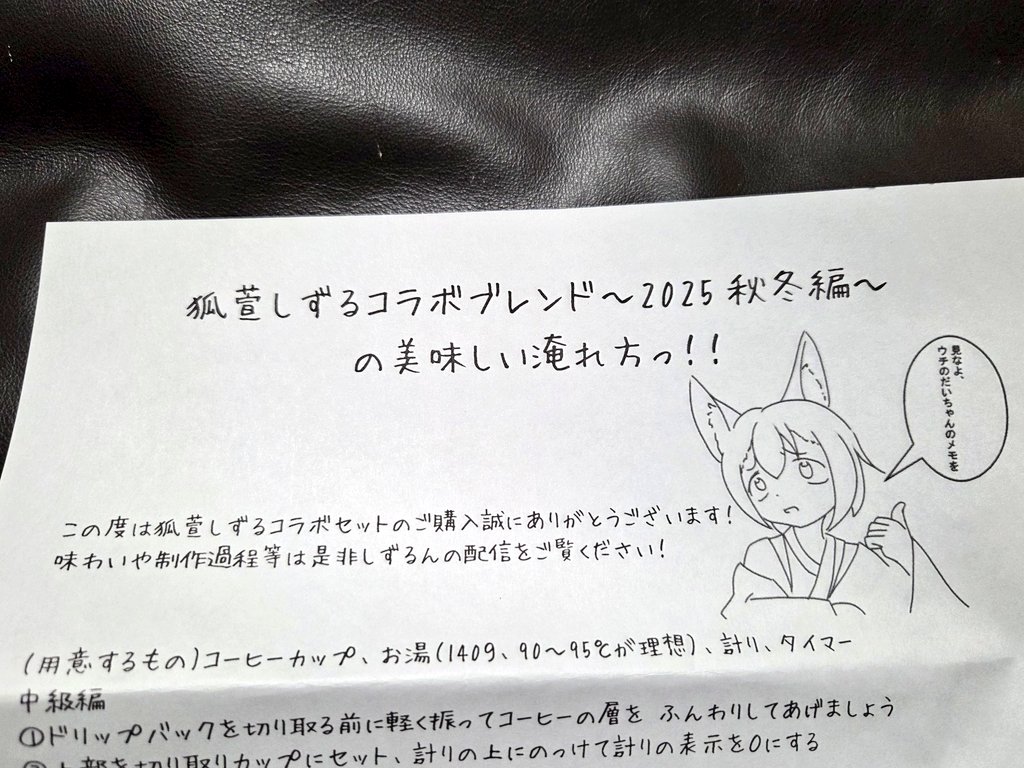 狐萱しずるコラボブレンド～2025秋冬編～
の美味しい淹れ方っ!!
見なよ、
ウチのだいちゃんのメモを
この度は狐萱しずるコラボセットのご購入誠にありがとうございます!
味わいや制作過程等は是非しずるんの配信をご覧ください!
(用意するもの)コーヒーカップ、お湯(140g、90～95℃が理想)、計り、タイマー
中級編
①ドリップバックを切り取る前に軽く振ってコーヒーの層を ふんわりしてあげましょう
②上部を切り取りカップにセット、計りの上にのっけて計りの表示を0にする